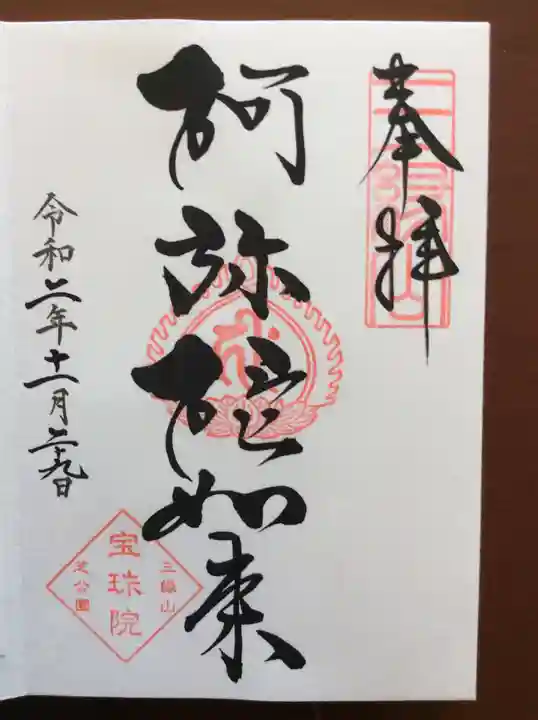 奉拝
三縁山
阿弥陀如来
令和二年十一月二十九日
三縁山
宝珠院
芝公園